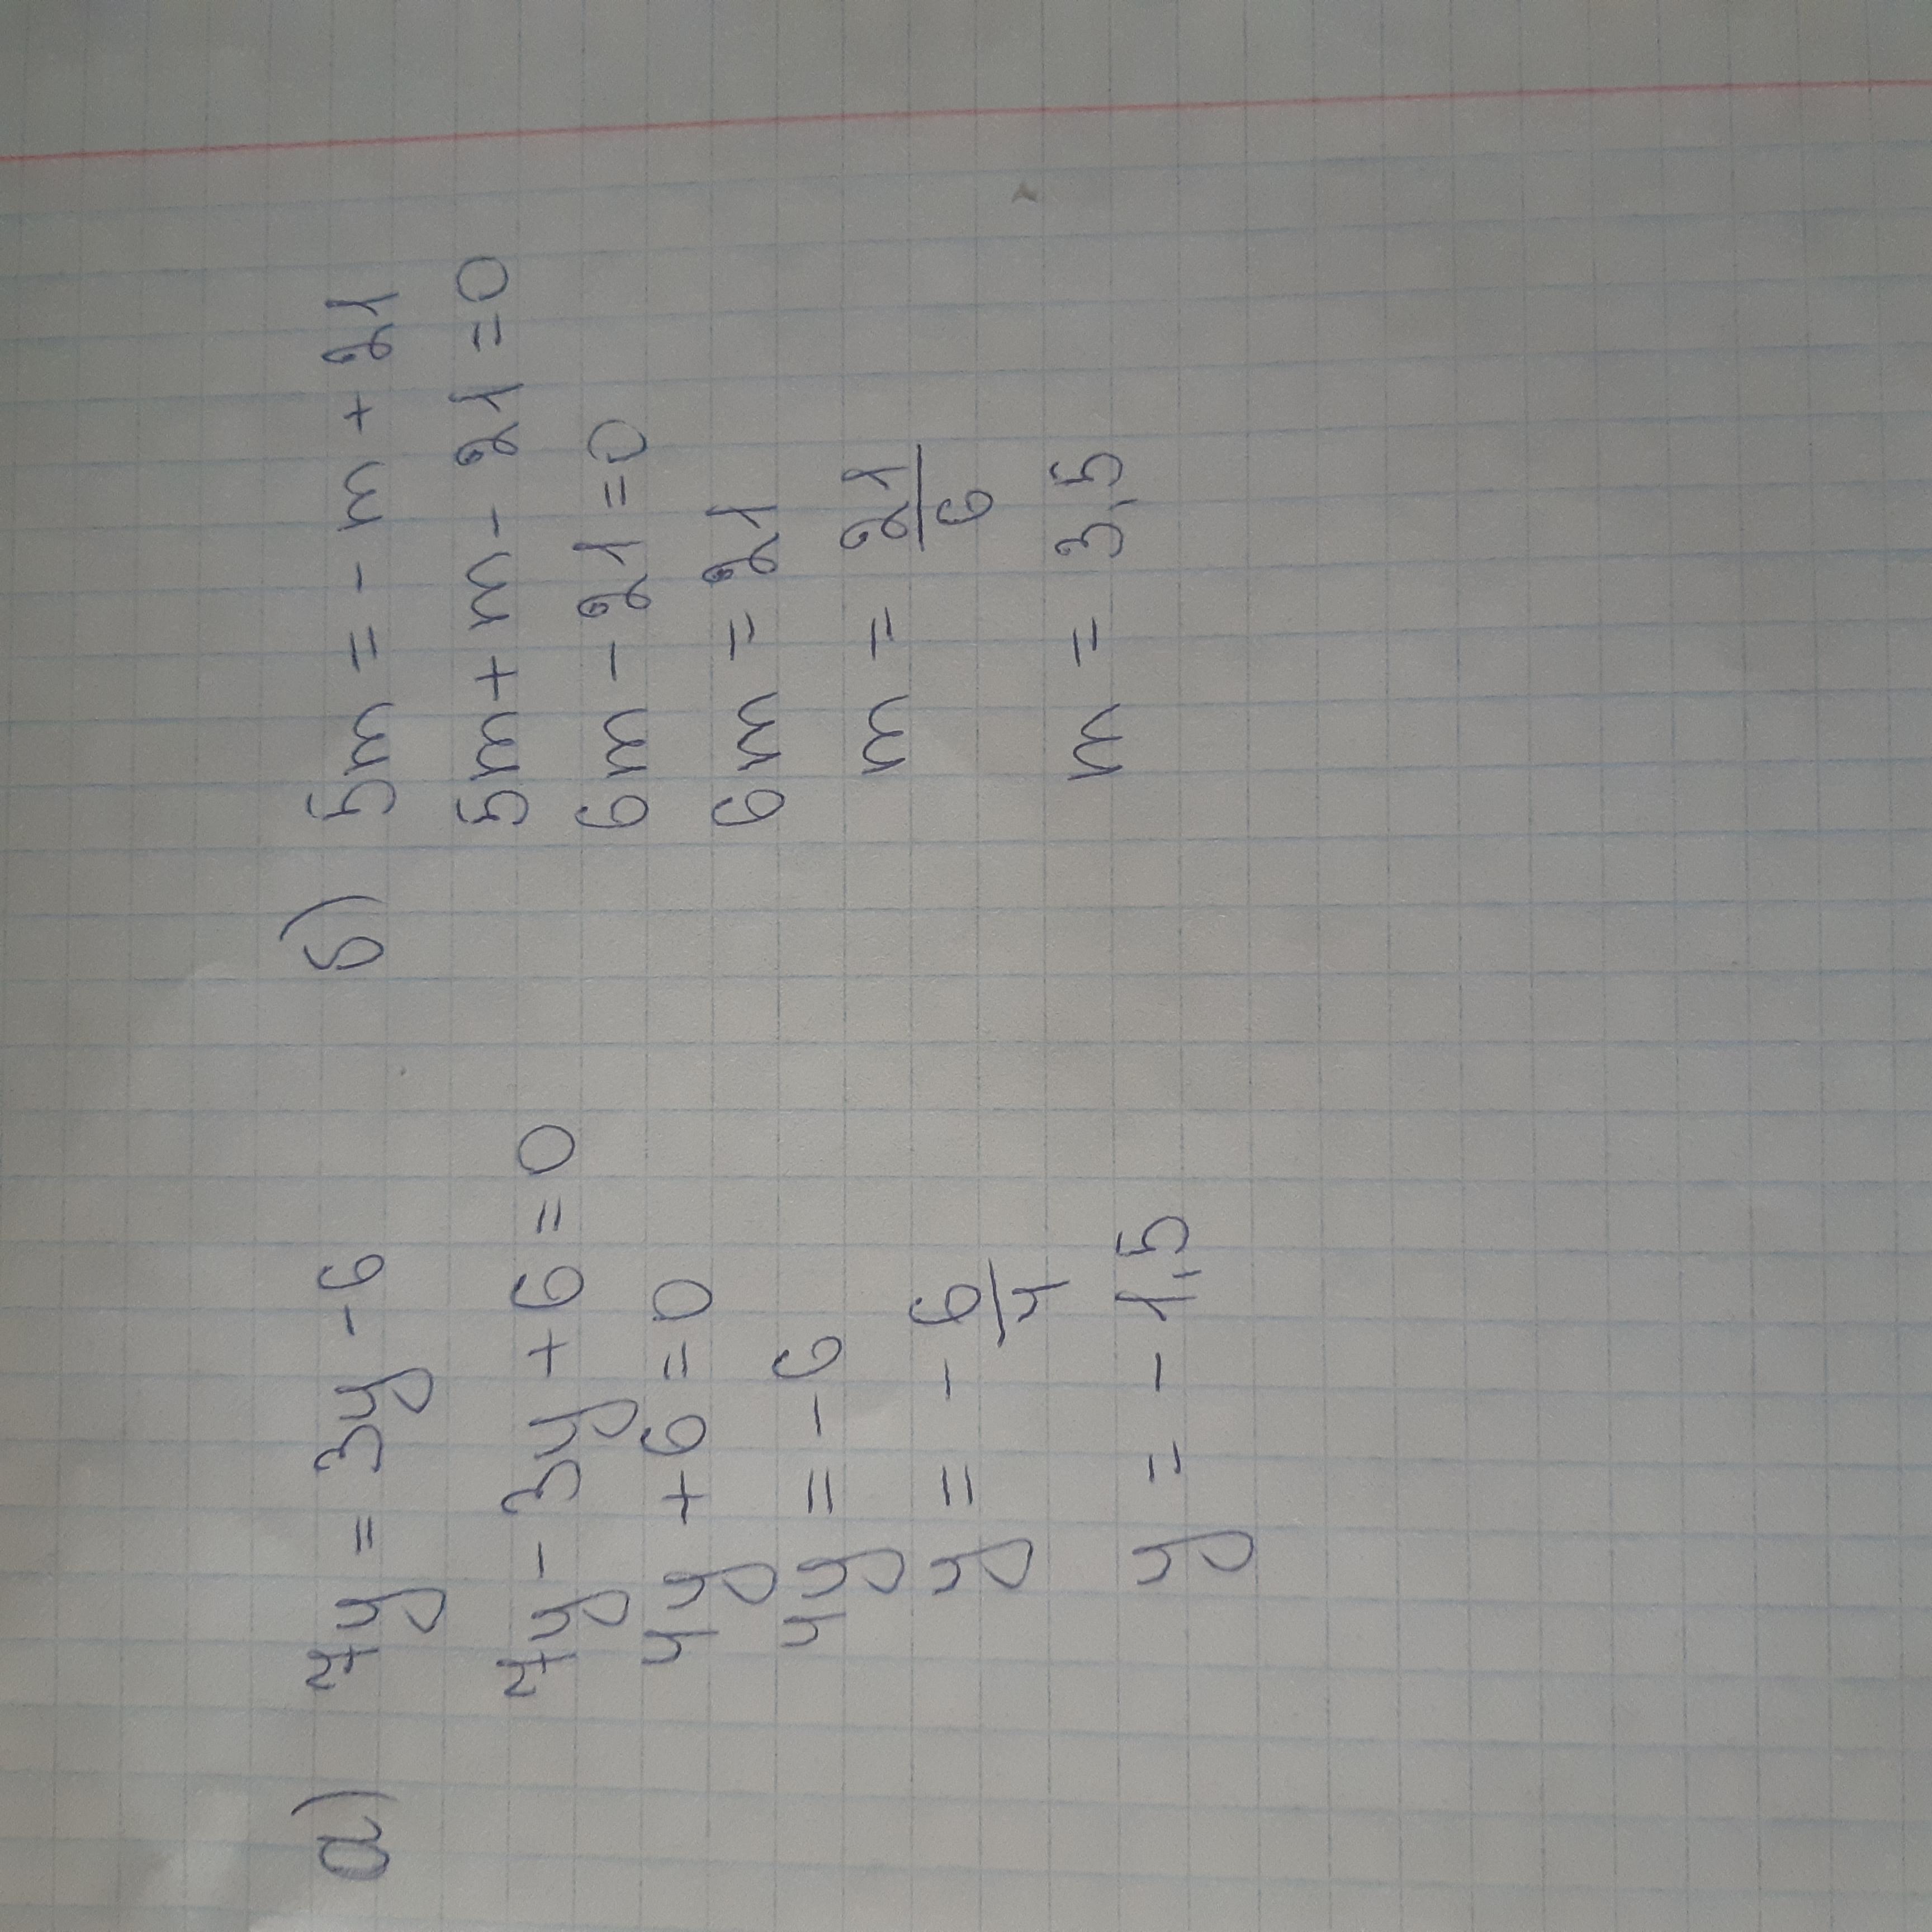 а) 7y = 3y - 6
7y - 3y + 6 = 0
4y + 6 = 0
4y = - 6
y = - 6/4
y = - 1,5
б) 5m = - m + 21
5m + m - 21 = 0
6m - 21 = 0
6m = 21
m = 21/6
m = 3,5